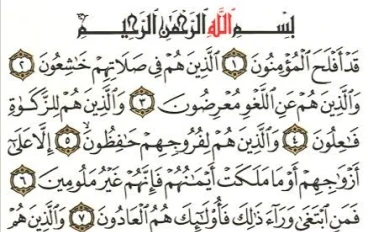 بِسْمِ اللَّهِ الرَّحْمَٰنِ الرَّحِيمِ
قَدْ أَفْلَحَ الْمُؤْمِنُونَ ١ الَّذِينَ هُمْ فِي صَلَاتِهِمْ خَاشِعُونَ ٢
وَالَّذِينَ هُمْ عَنِ اللَّغْوِ مُعْرِضُونَ ٣ وَالَّذِينَ هُمْ لِلزَّكَوٰةِ
فَاعِلُونَ ٤ وَالَّذِينَ هُمْ لِفُرُوجِهِمْ حَافِظُونَ ٥ إِلَّا عَلَىٰ
أَزْوَاجِهِمْ أَوْ مَا مَلَكَتْ أَيْمَانُهُمْ فَإِنَّهُمْ غَيْرُ مَلُومِينَ ٦
فَمَنِ ابْتَغَىٰ وَرَاءَ ذَٰلِكَ فَأُولَٰئِكَ هُمُ الْعَادُونَ ٧ وَالَّذِينَ هُمْ